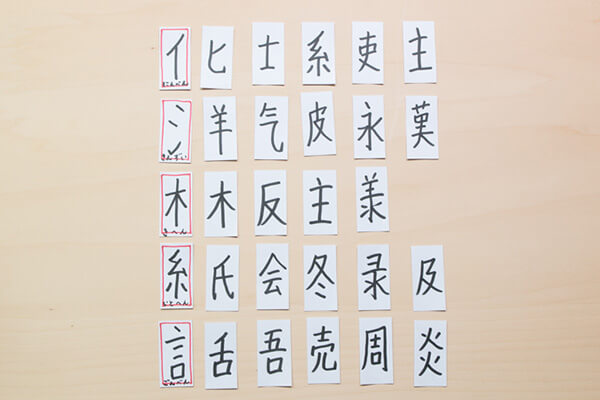 亻 匕 士 系 吏 主
にんべん
氵 羊 气 皮 永 𦰩
さんずい
木 木 反 主 羕
きへん
糸 氏 会 冬 录 及
いとへん
言 舌 吾 売 周 炎
ごんべん